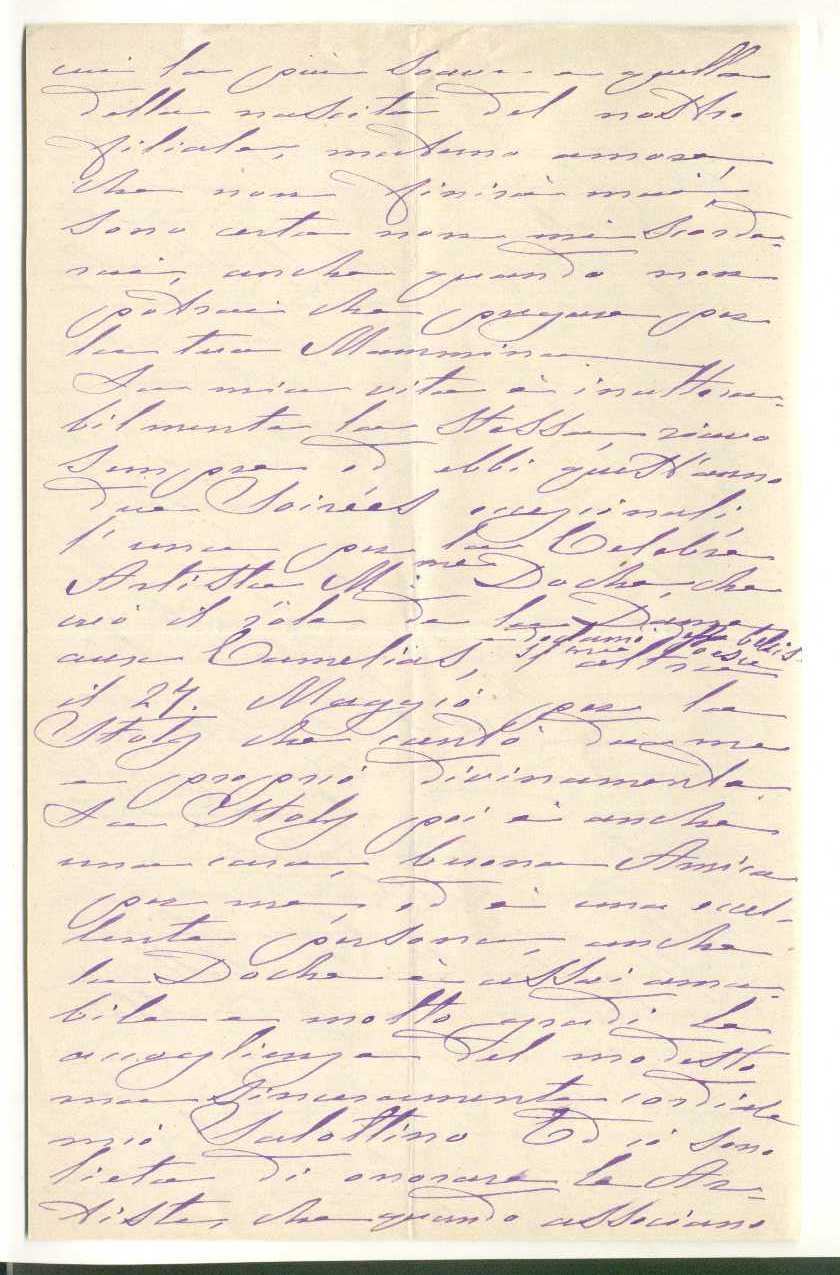 cui la più soave è quella
della nascita del nostro
filiale, materno amore,
che non finirà mai!
Sono certa non mi scorde-
rai, anche quando non
potrai che pregare per
la tua Mammina
La mia vita è inaltera-
bilmente la stessa, ricevo
sempre ed ebbi quest'anno
due Soirées eccezionali,
l'una per la Celebre
Artista M.me Doche, che
creò il rôle de la Dame
aux Camelias, e declamò
poesie, l'altra
il 27. Maggio per la
Stolz che cantò da me
e proprio divinamente
La Stolz poi è anche
una cara, buona Amica
per me, ed è una eccel-
lente persona, anche
la Doche è assai ama-
bile e molto gradì le
accoglienze del modesto
ma sinceramente cordiale
mio Salottino Ed io sono
lieta di onorare le Ar-
tiste, che quando associano